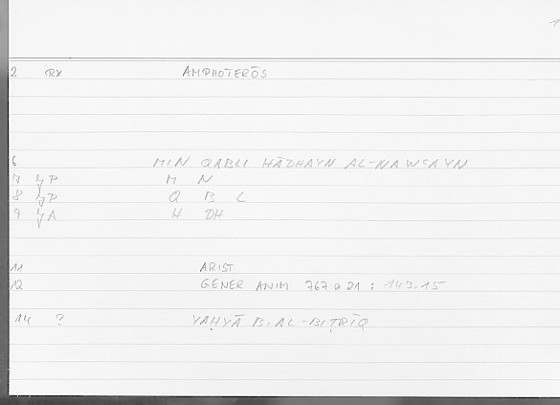 2 RX AMPHOTERŌS
6 MIN QABLI HĀDHAYN AL-NAWʿAYN
7 YP M N
8 YP Q B L
9 YA H DH
11 ARIST
12 GENER ANIM 767 a 21 : 143.15
14 ? YAḤYĀ B. AL-BIṬRĪQ